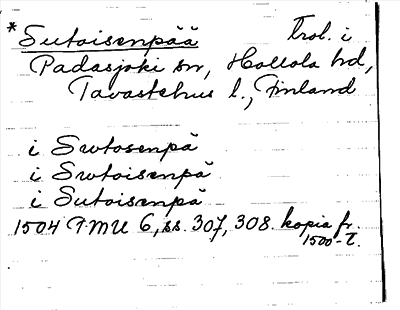 *Sutoisenpää Trol. i
Padasjoki sn, Hollola hd,
Tavastehus l., Finland
i Swtosenpä
i Swtoisenpä
i Sutoisenpä
1504 FMU 6, ss. 307, 308. kopia fr.
1500-t.